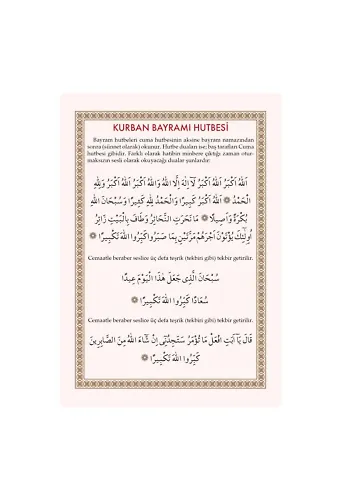 KURBAN BAYRAMI HUTBESİ
Bayram hutbeleri cuma hutbesinin aksine bayram namazından
sonra (sünnet olarak) okunur. Hutbe duaları ise; baş tarafları Cuma
hutbesi gibidir. Farklı olarak hatibin minbere çıktığı zaman otur-
maksızın sesli olarak okuyacağı dualar şunlardır:
اَللّٰهُ اَكْبَرُ اَللّٰهُ اَكْبَرُ لَٓا اِلٰهَ اِلَّا اللّٰهُ وَاللّٰهُ اَكْبَرُ اَللّٰهُ اَكْبَرُ وَلِلّٰهِ
الْحَمْدُ ۞ اَللّٰهُ اَكْبَرُ كَبِيرًا وَالْحَمْدُ لِلّٰهِ كَثِيرًا وَسُبْحَانَ اللّٰهِ
بُكْرَةً وَاَصِيلًا ۞ مَا نَحَرَتِ النَّحَائِرُ وَطَافَ بِالْبَيْتِ زَائِرٌ
اُولٰٓئِكَ يُؤْتَوْنَ اَجْرَهُمْ مَرَّتَيْنِ بِمَا صَبَرُوا كَبِّرُوا اللّٰهَ تَكْبِيرًا ۞
Cemaatle beraber seslice üç defa teşrik (tekbiri gibi) tekbir getirilir.
سُبْحَانَ الَّذِى جَعَلَ هٰذَا الْيَوْمَ عِيدًا
سُعَادًا كَبِّرُوا اللّٰهَ تَكْبِيرًا ۞
Cemaatle beraber seslice üç defa teşrik (tekbiri gibi) tekbir getirilir.
قَالَ يَٓا اَبَتِ افْعَلْ مَا تُؤْمَرُ سَتَجِدُنِى اِنْ شَٓاءَ اللّٰهُ مِنَ الصَّابِرِينَ
كَبِّرُوا اللّٰهَ تَكْبِيرًا ۞